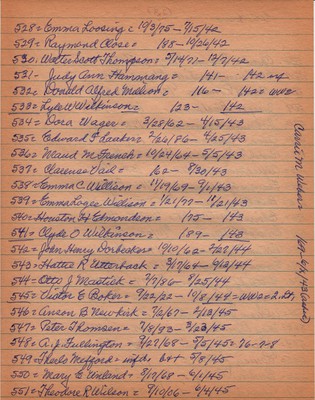 528 = Emma Loosing = 10/3/75 - 7/15/42
529 = Raymond Close = 1/48 - 10/26/42
530. Walter Scott Thompson = 2/14/71 - 12/7/42
531 - Judy Ann Hammang = 141 - 142
532 = Donald Alfred = 116 - 142 = WW2
533 = Lyle W Wilkinson = 123 - 142
534 = Dora Wager = 3/28/62 - 4/15/43
535 = Edward F Lauker = 2/26/86 - 4/25/43
536 = Maud M. French = 10/24/64 - 5/5/43
537 = Clarence Vail = 62 - 8/30/43
538 = Emma C. Willison = 11/19/69 - 9/1/43
539 = Emma Logee Willison = 1/21/77 - 11/21/43
540 = Houston H Edmondson = 175 - 143
541 = Clyde O Wilkinson = 189 - 143
542 = John Henry Dorbecker = 10/10/62 - 2/22/44
543 = Hattie R Utterback = 3/17/64 - 6/12/44
544 = Otto J Mastick = 9/9/86 - 9/25/44
545 = Victor E Boker = 9/22/22 - 10/8/44 = WW2 = 2. Lt.
546 = Anson B Newkirk = 7/2/67 - 2/13/45
547 = Peter Thomsen = 7/8/93 - 3/23/45
548 = A. J. Fullington = 9/27/68 - 9/5/45 = 76-7-8
549 = Merle Mefford = inf. b+d 5/8/45
550 = Mary E Unland = 9/17/68 - 6/1/45
551 = Theodore R Wilson = 8/10/06 - 6/4/45
Cassie M Weber =